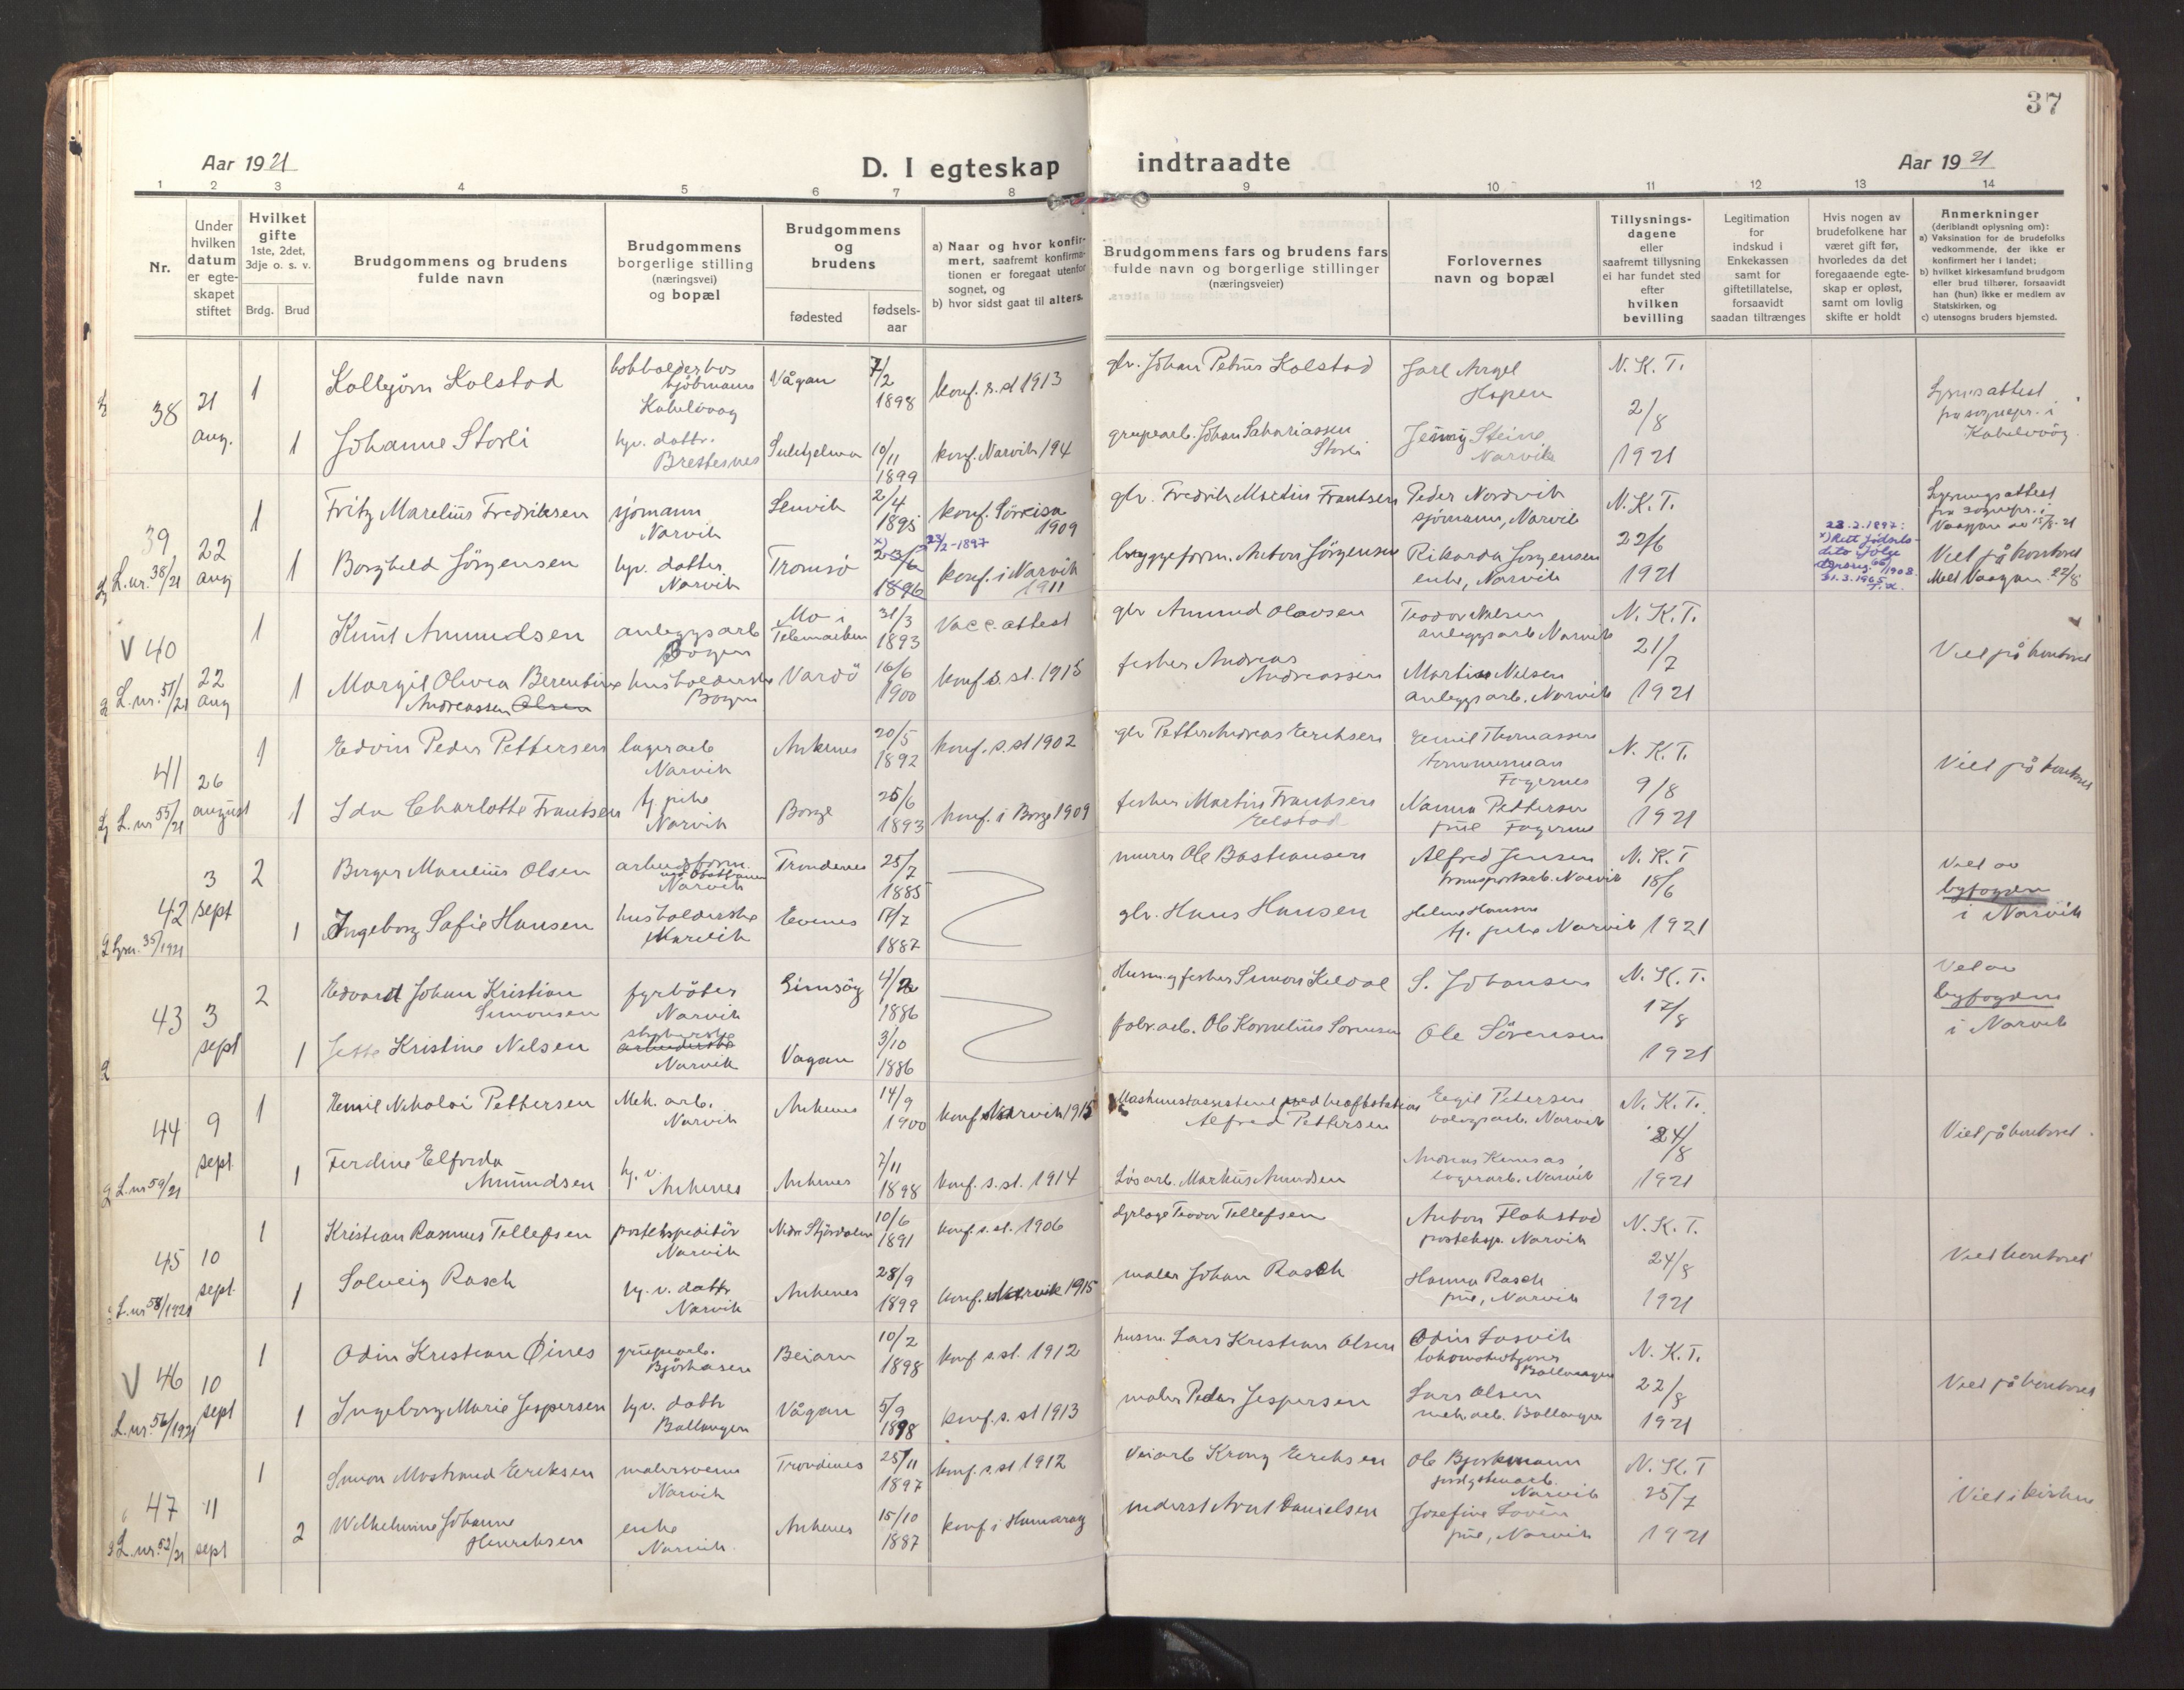 37
Aar 1921
D. I egteskap
indtraadte
Aar 1921
1 2 3 4 5 6 7 8 9 10 11 12 13 14
Nr.
Under hvilken datum er egteskapet stiftet
Hvilket gifte
1ste, 2det, 3dje o. s. v.
Brdg. Brud
Brudgommens og brudens fulde navn
Brudgommens borgerlige stilling (næringsvei) og bopæl
Brudgommens og brudens
fødested
fødsels-aar
a) Naar og hvor konfirmert, saafremt konfirmationen er foregaat utenfor sognet, og
b) hvor sidst gaat til alters.
Brudgommens fars og brudens fars fulde navn og borgerlige stillinger (næringsveier)
Forlovernes navn og bopæl
Tillysnings-dagene eller saafremt tillysning ei har fundet sted efter hvilken bevilling
Legitimation for indskud i Enkekassen samt for giftetillatelse, forsaavidt saadan tiltrænges
Hvis nogen av brudefolkene har været gift før, hvorledes da det foregaaende egteskap er opløst, samt om lovlig skifte er holdt
Anmerkninger (deriblandt oplysning om):
a) Vaksination for de brudefolks vedkommende, der ikke er konfirmert her i landet;
b) hvilket kirkesamfund brudgom eller brud tilhører, forsaavidt han (hun) ikke er medlem av Statskirken, og
c) utensogns bruders hjemsted.
38 21 aug. 1 Kolbjørn Kolstad Kabelvaag Vågan 7/2 1898 konf. s. st 1913 gbr. Johan Petrus Kolstad Jarl Angel Hopen N. K. T. 2/8 1921
1 Johanne Storli hjv. dattr. Brettesnes Sulitjelma 10/11 1899 konf. Narvik 194 grubearb. Johan Sakariassen Storli Jenny Steine Narvik
Kabelvåg.
39 L.nr. 38/21 22 aug 1 Fritz Marelius Fredriksen sjømann Narvik Lenvik 2/4 1895 konf. Sørreisa 1909 gbr. Fredrik Martin Frantsen Peder Nordvik sjømann, Narvik N. K. T. 22/6 1921
1 Borghild Jørgensen hjv. datter Narvik Tromsø 23/6 1896 23/2-1897 konf. i Narvik 1911 bryggeform. Anton Jørgensen Rikarda Jørgensen enke, Narvik
23.2.1897:
Viet på kontoret
V 40 L.nr. 57/21 22 aug 1 Knut Amundsen anleggsarb Bogen Mo i Telemarken 31/3 1893 Vacc. attest gbr Amund Olavsen Teodor Nilsen anleggsarb Narvik N. K. T. 21/7 1921 Viet på kontoret
1 Margit Olivia Berentine Andreassen Olsen husholderske Bogen Vardö 16/6 1900 konf s. st. 1915 fisker Andreas Andreassen Martin Nilsen anleggsarb. Narvik
41 L.nr 55/21 26 august 1 Edvin Peder Pettersen lagerarb Narvik Ankenes 20/5 1892 konf. s. st 1902 gbr Petter Andreas Eriksen Emil Thomassen tømmermann Fagernes N. K. T. 9/8 1921 Viet på kontoret
1 Ida Charlotte Frantsen tj. pike Narvik Borge 25/6 1893 konf. i Borge 1909 fisker Martin Frantsen Nanna Pettersen frue Fagernes
42 35/1921 3 sept 2 Birger Marelius Olsen Narvik Trondenes 25/7 1885 murer Ole Bastiansen Alfred Jensen transportarb. Narvik N. K. T 18/6 1921 Viet av byfogden i Narvik
1 Ingeborg Sofie Hansen husholderske Narvik Evenes 17/7 1887 gbr. Hans Hansen Helene Hansen tj. pike Narvik
43 3 sept 2 Edvard Johan Kristian Simonsen fyrbøter Narvik Gimsøy 4/2 1886 Husm. og fisker Simon Kildal S. Johansen N. K. T. 17/8 1921 Viet av byfogden i Narvik
1 Jette Kristine Nilsen Narvik Vagan 3/10 1886 fabr. arb. Ole Kornelius Sørensen Ole Sørensen
44 L.nr 59/21 9 sept. 1 Emil Nikolai Pettersen Mek. arb. Narvik Ankenes 14/9 1900 konf. Narvik 1915 Maskinistassistent ved kraftstation Alfred Pettersen Eigil Petersen Narvik N. K. T. 24/8 1921 Viet på kontoret.
1 Ferdine Elfrida Amundsen hj. v. Ankenes Ankenes 7/11 1898 konf. s. st. 1914 Løsarb. Markus Amundsen lagerarb. Narvik
45 L.nr 58/1921 10 sept. 1 Kristian Rasmus Tellefsen postekspeditör Narvik Nedre Stjørdalen 10/6 1891 konf. s. st. 1906 dyrlæge Teodor Tellefsen Anton Flakstad posteksp. Narvik N. K. T. 24/8 1921 Viet kontoret
1 Solveig Rasch hj. v. dattr Narvik Ankenes 28/9 1899 konf. Narvik 1915 maler Johan Rasch Hanna Rasch frue, Narvik
V 46 L.nr. 56/1921 10 sept 1 Odin Kristian Øines grubearb. Bjørkåsen Beiarn 10/2 1898 konf s. st. 1912 husm. Lars Kristian Olsen Odin Losvik Ballangen N. K. T. 22/8 1921 Viet på kontoret
1 Ingeborg Marie Jespersen hjv. dattr Ballangen Vågan 5/9 1898 konf. s. st 1913 maler Peder Jespersen Lars Olsen mek. arb. Ballangen
47 L.nr. 52/21 11 sept 1 Simon Mostrand Eriksen malersvenn Narvik Trondenes 25/11 1897 konf. s. st 1912 Veiarb Krong Eriksen Ole Bjørkmann Narvik N. K. T 25/7 1921 Viet i kirken
2 Wilhelmine Johanne Henriksen enke Narvik Ankenes 15/10 1887 konf i Hamarøy inderst Arnt Danielsen Josefine Lovén frue, Narvik